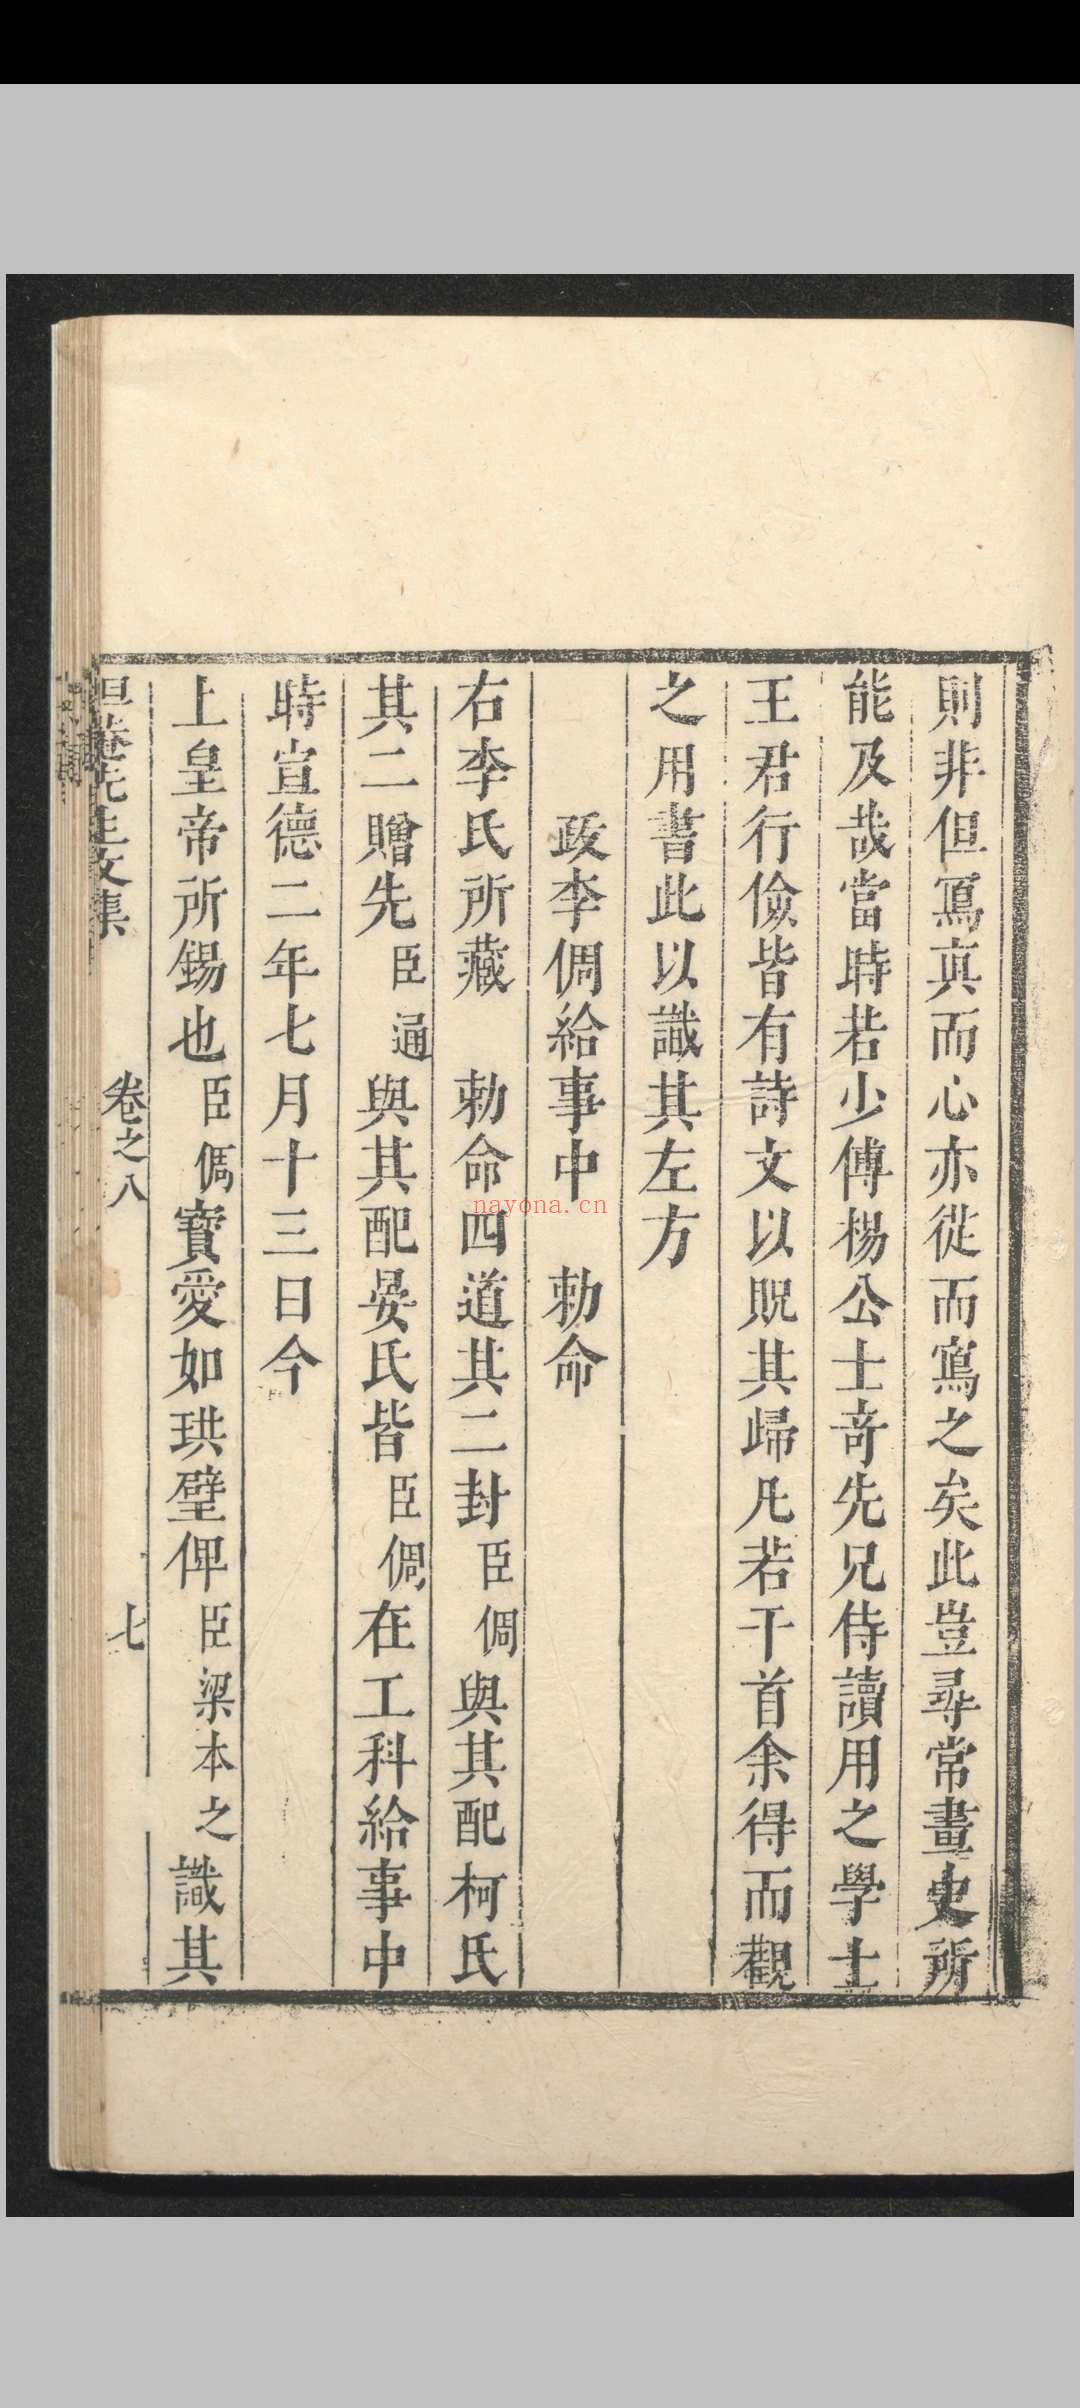 則非但寫真而心亦從而寫之矣此豈尋常畫史所
能及哉當時若少傅楊公士奇先兄侍讀用之學士
王君行儉皆有詩文以貺其歸凡若干首余得而觀
之用書此以識其左方
跋李倜給事中 勅命
右李氏所藏 勅命四道其二封臣倜與其配柯氏
其二贈先臣通與其配晏氏皆臣倜在工科給事中
時宣德二年七月十三日今
上皇帝所錫也臣倜寶愛如珙璧俾臣梁本之識其
坦菴先生文集 卷之八 七
nayona.cn